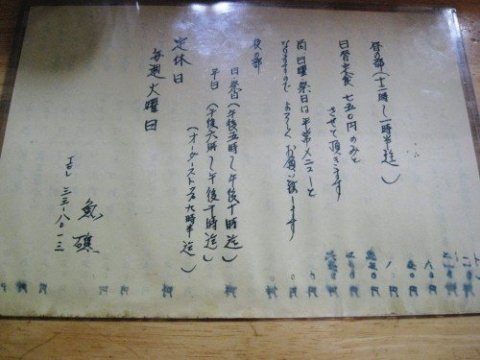 昼の部(十一時〜一時半迄)
日替定食 七五〇円のみと
させて頂きます
尚日曜祭日は平常メニューと
なりますので よろしくお願い致します
夜の部
日・祭日(午後五時〜午後十時迄)
平日(午後六時〜午後十時迄)
(オーダーストップ九時半迄)
定休日
毎週火曜日
魚礁
TEL 三五-八〇一三